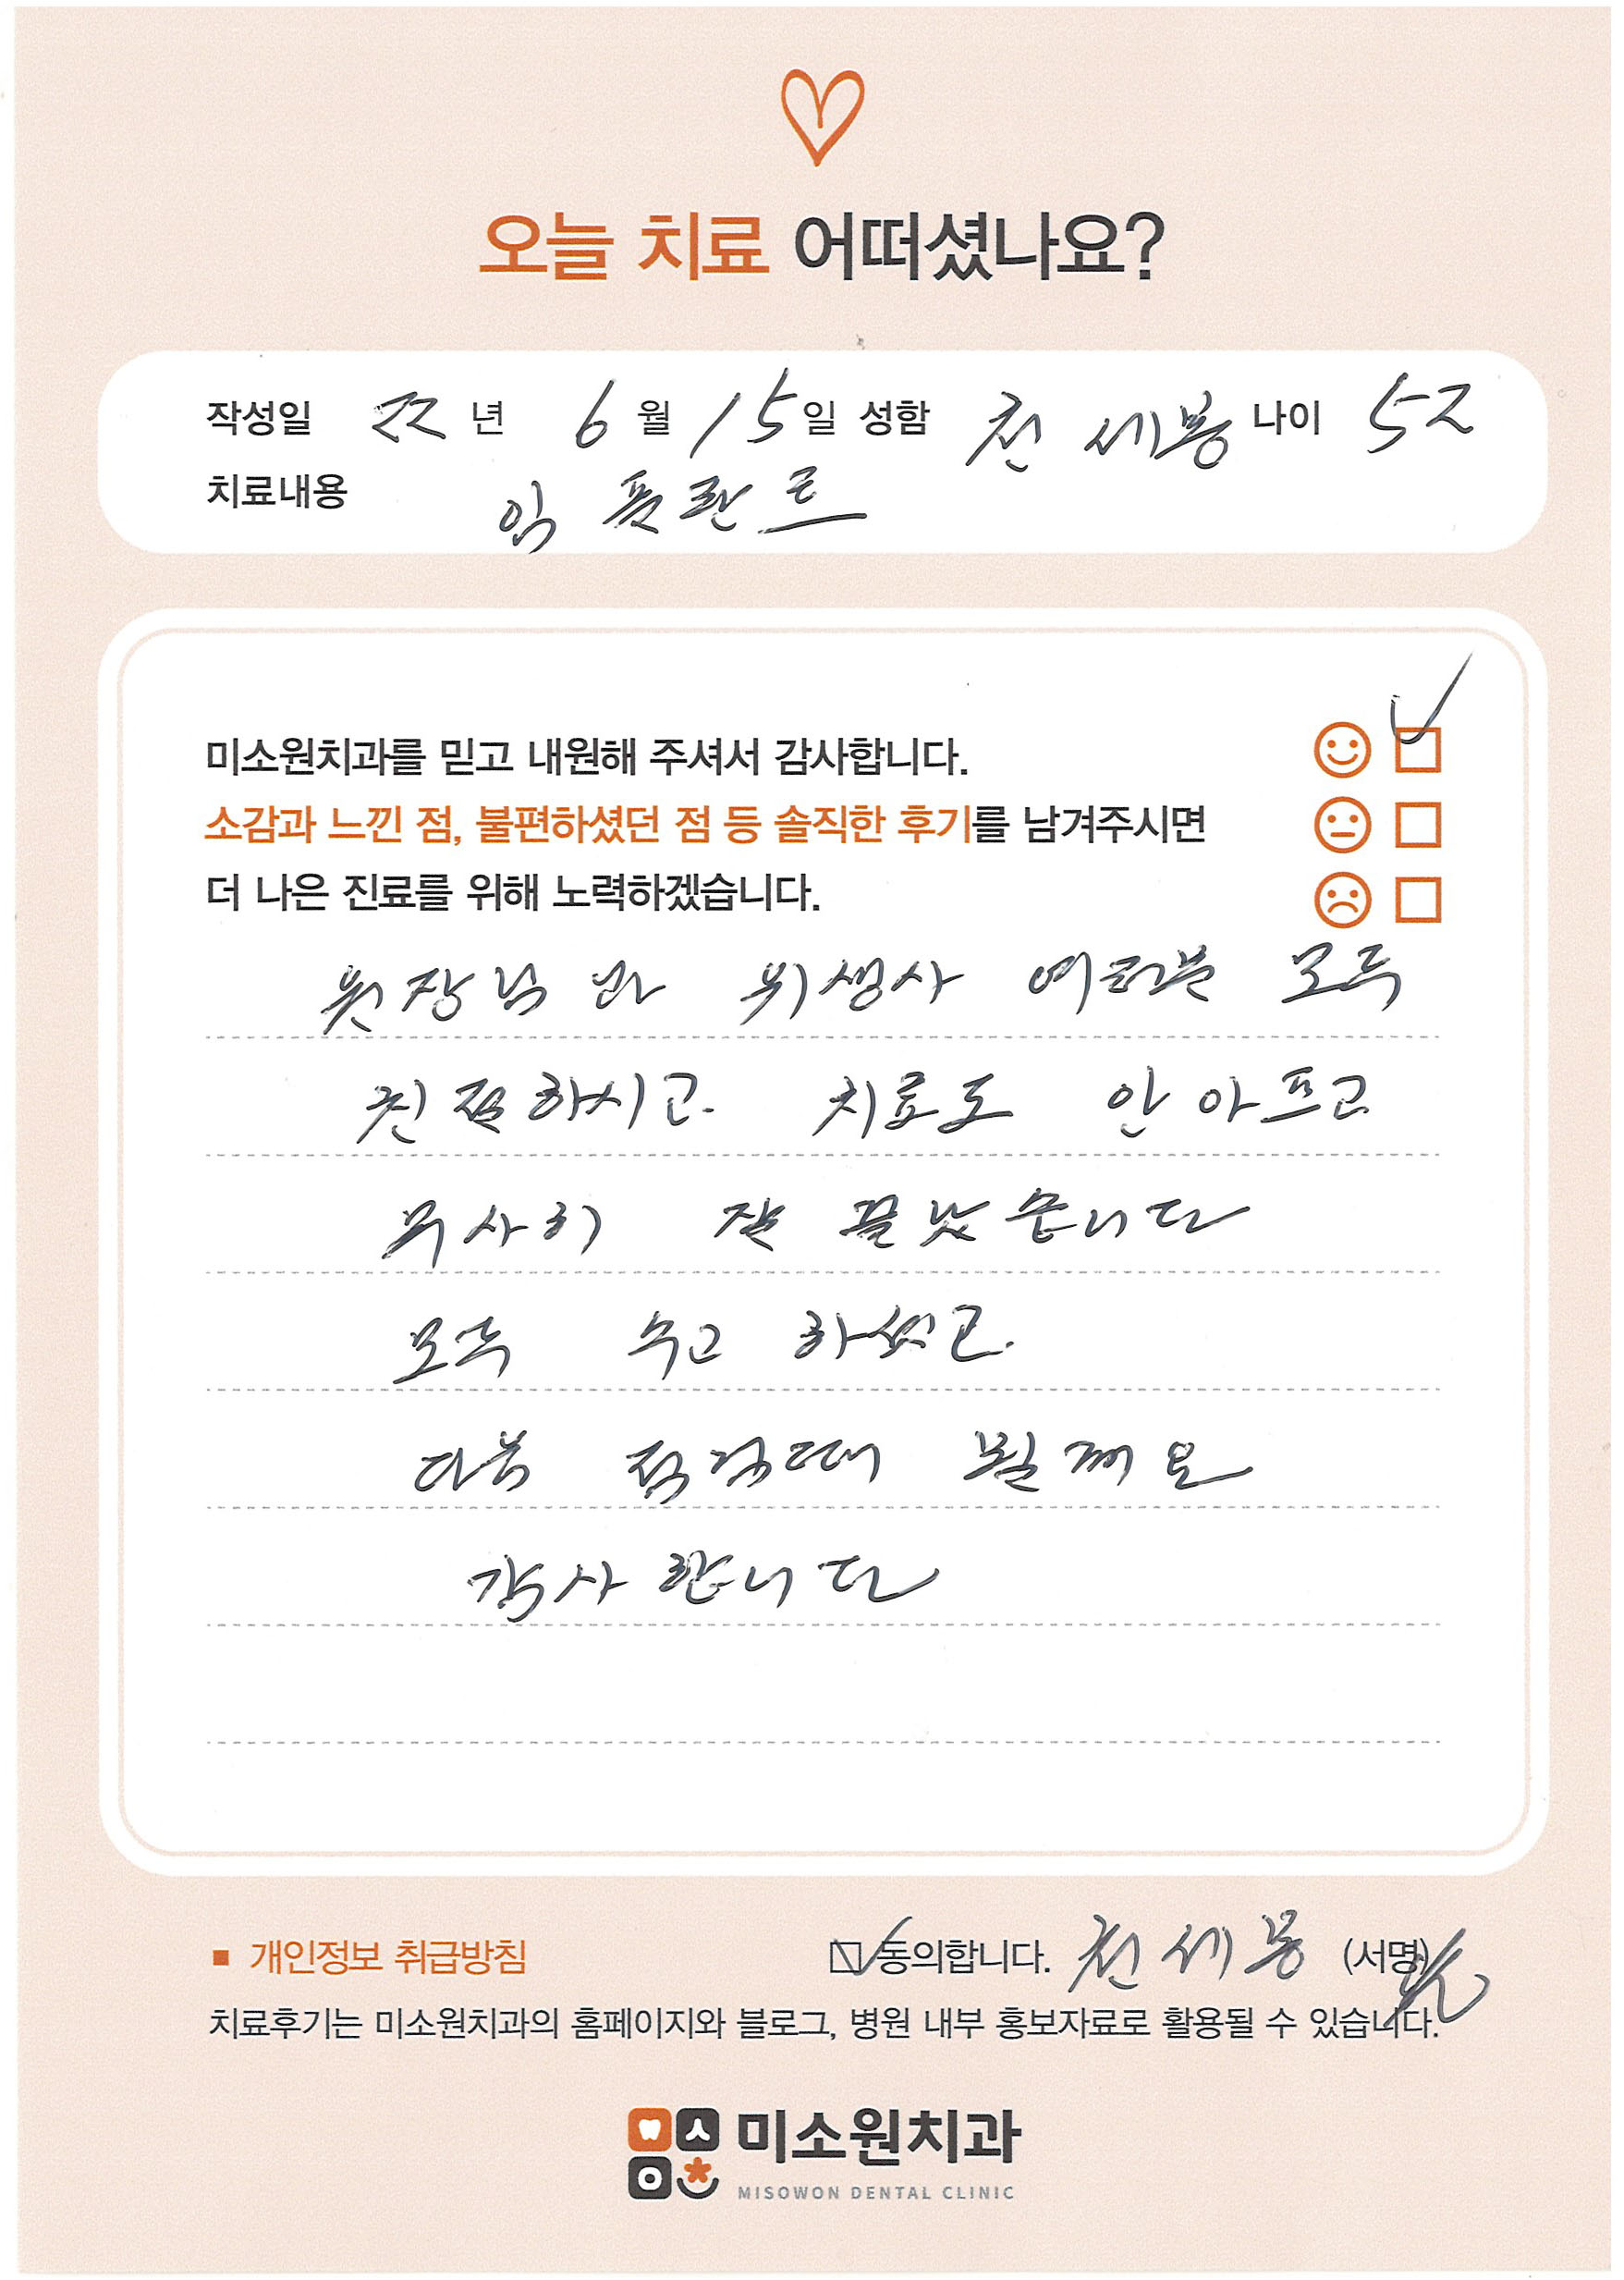 오늘 치료 어떠셨나요?
작성일 22년 6월 15일 성함 천세봉 나이 52
치료내용 임플란트
미소원치과를 믿고 내원해 주셔서 감사합니다.
소감과 느낀 점, 불편하셨던 점 등 솔직한 후기를 남겨주시면
더 나은 진료를 위해 노력하겠습니다.
원장님과 위생사 여러분 모두
친절하시고. 치료도 안아프고
무사히 잘 끝났습니다
모두 수고 하셨고.
다음 점검때 뵐께요
감사합니다
■ 개인정보 취급방침 동의합니다. 천세봉 (서명)
치료후기는 미소원치과의 홈페이지와 블로그, 병원 내부 홍보자료로 활용될 수 있습니다.
미소원치과
MISOWON DENTAL CLINIC